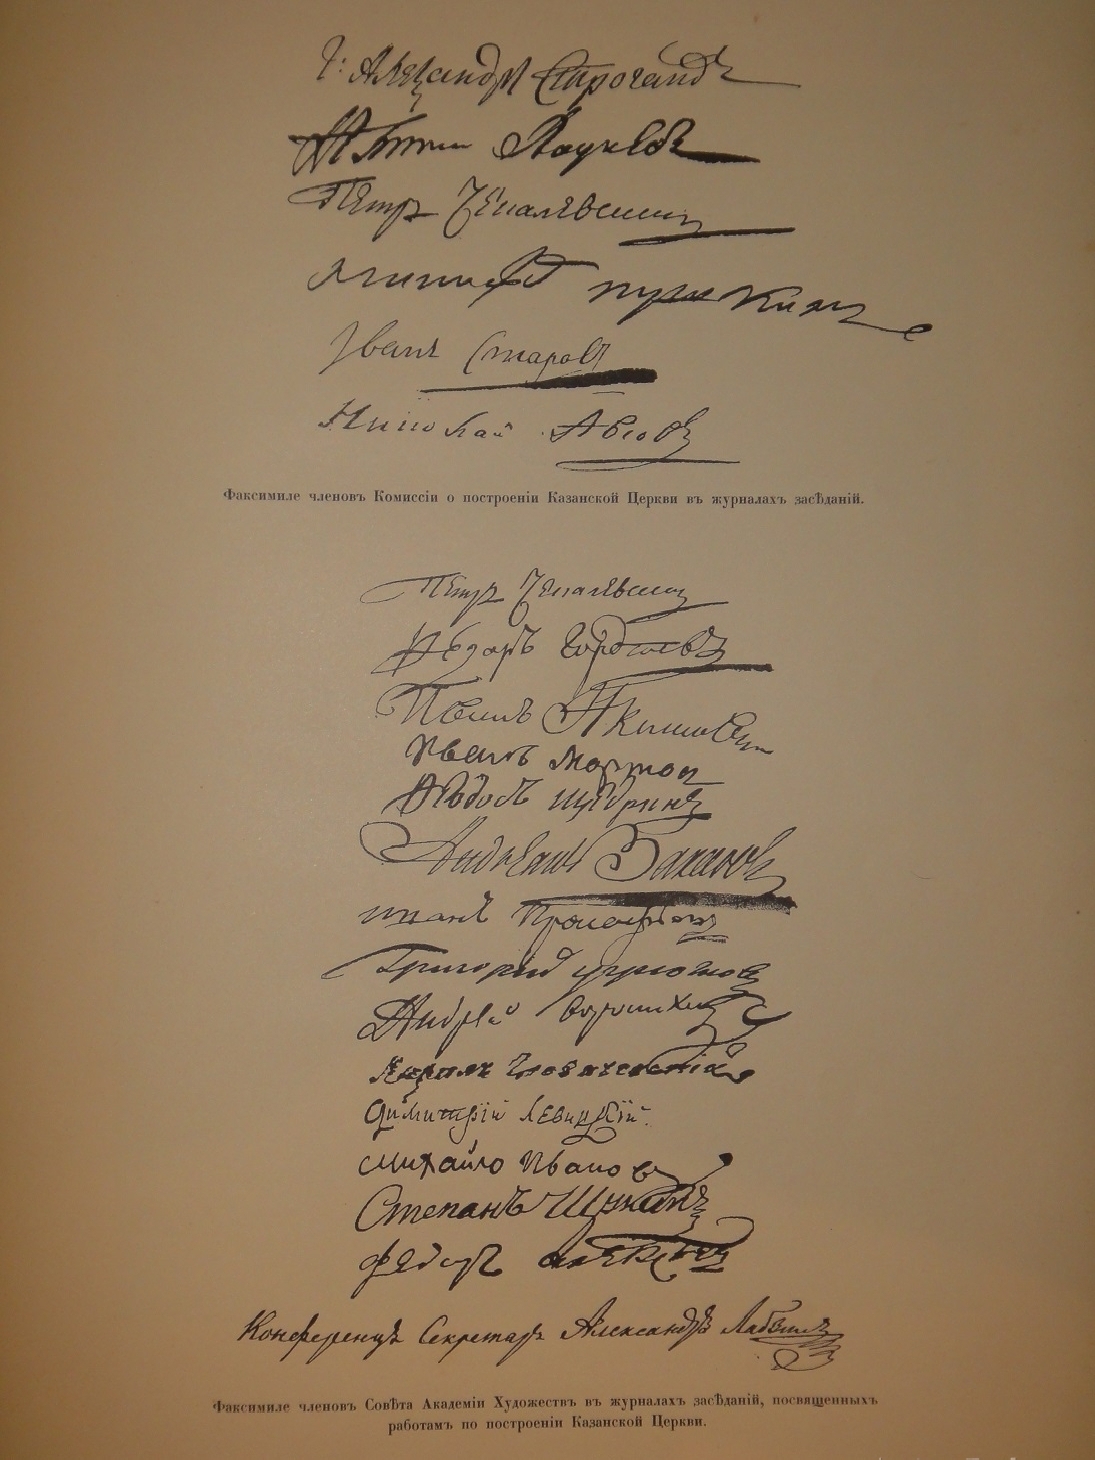 Г: Александръ Строгановъ
Петръ Чекалевский
Пушкинъ
Иванъ Старовъ
Николай
Факсимиле членовъ Комиссіи о построеніи Казанской Церкви въ журналахъ засѣданій.
Петръ Чекалевский
Ѳедоръ Гордѣевъ
Иванъ Акимовъ
Иванъ Мартос
Ѳедосъ Щедринъ
Андреянъ Захаровъ
иванъ Прокофьевъ
Григорий угрюмовъ
Андрей
Головачевскій
Димитрій Левицкій.
михайло Иванов
Степанъ Щукинъ
федоръ алексѣевъ
Конференцъ Секретарь Александръ Лабзинъ
Факсимиле членовъ Совѣта Академіи Художествъ въ журналахъ засѣданій, посвященныхъ
работамъ по построеніи Казанской Церкви.